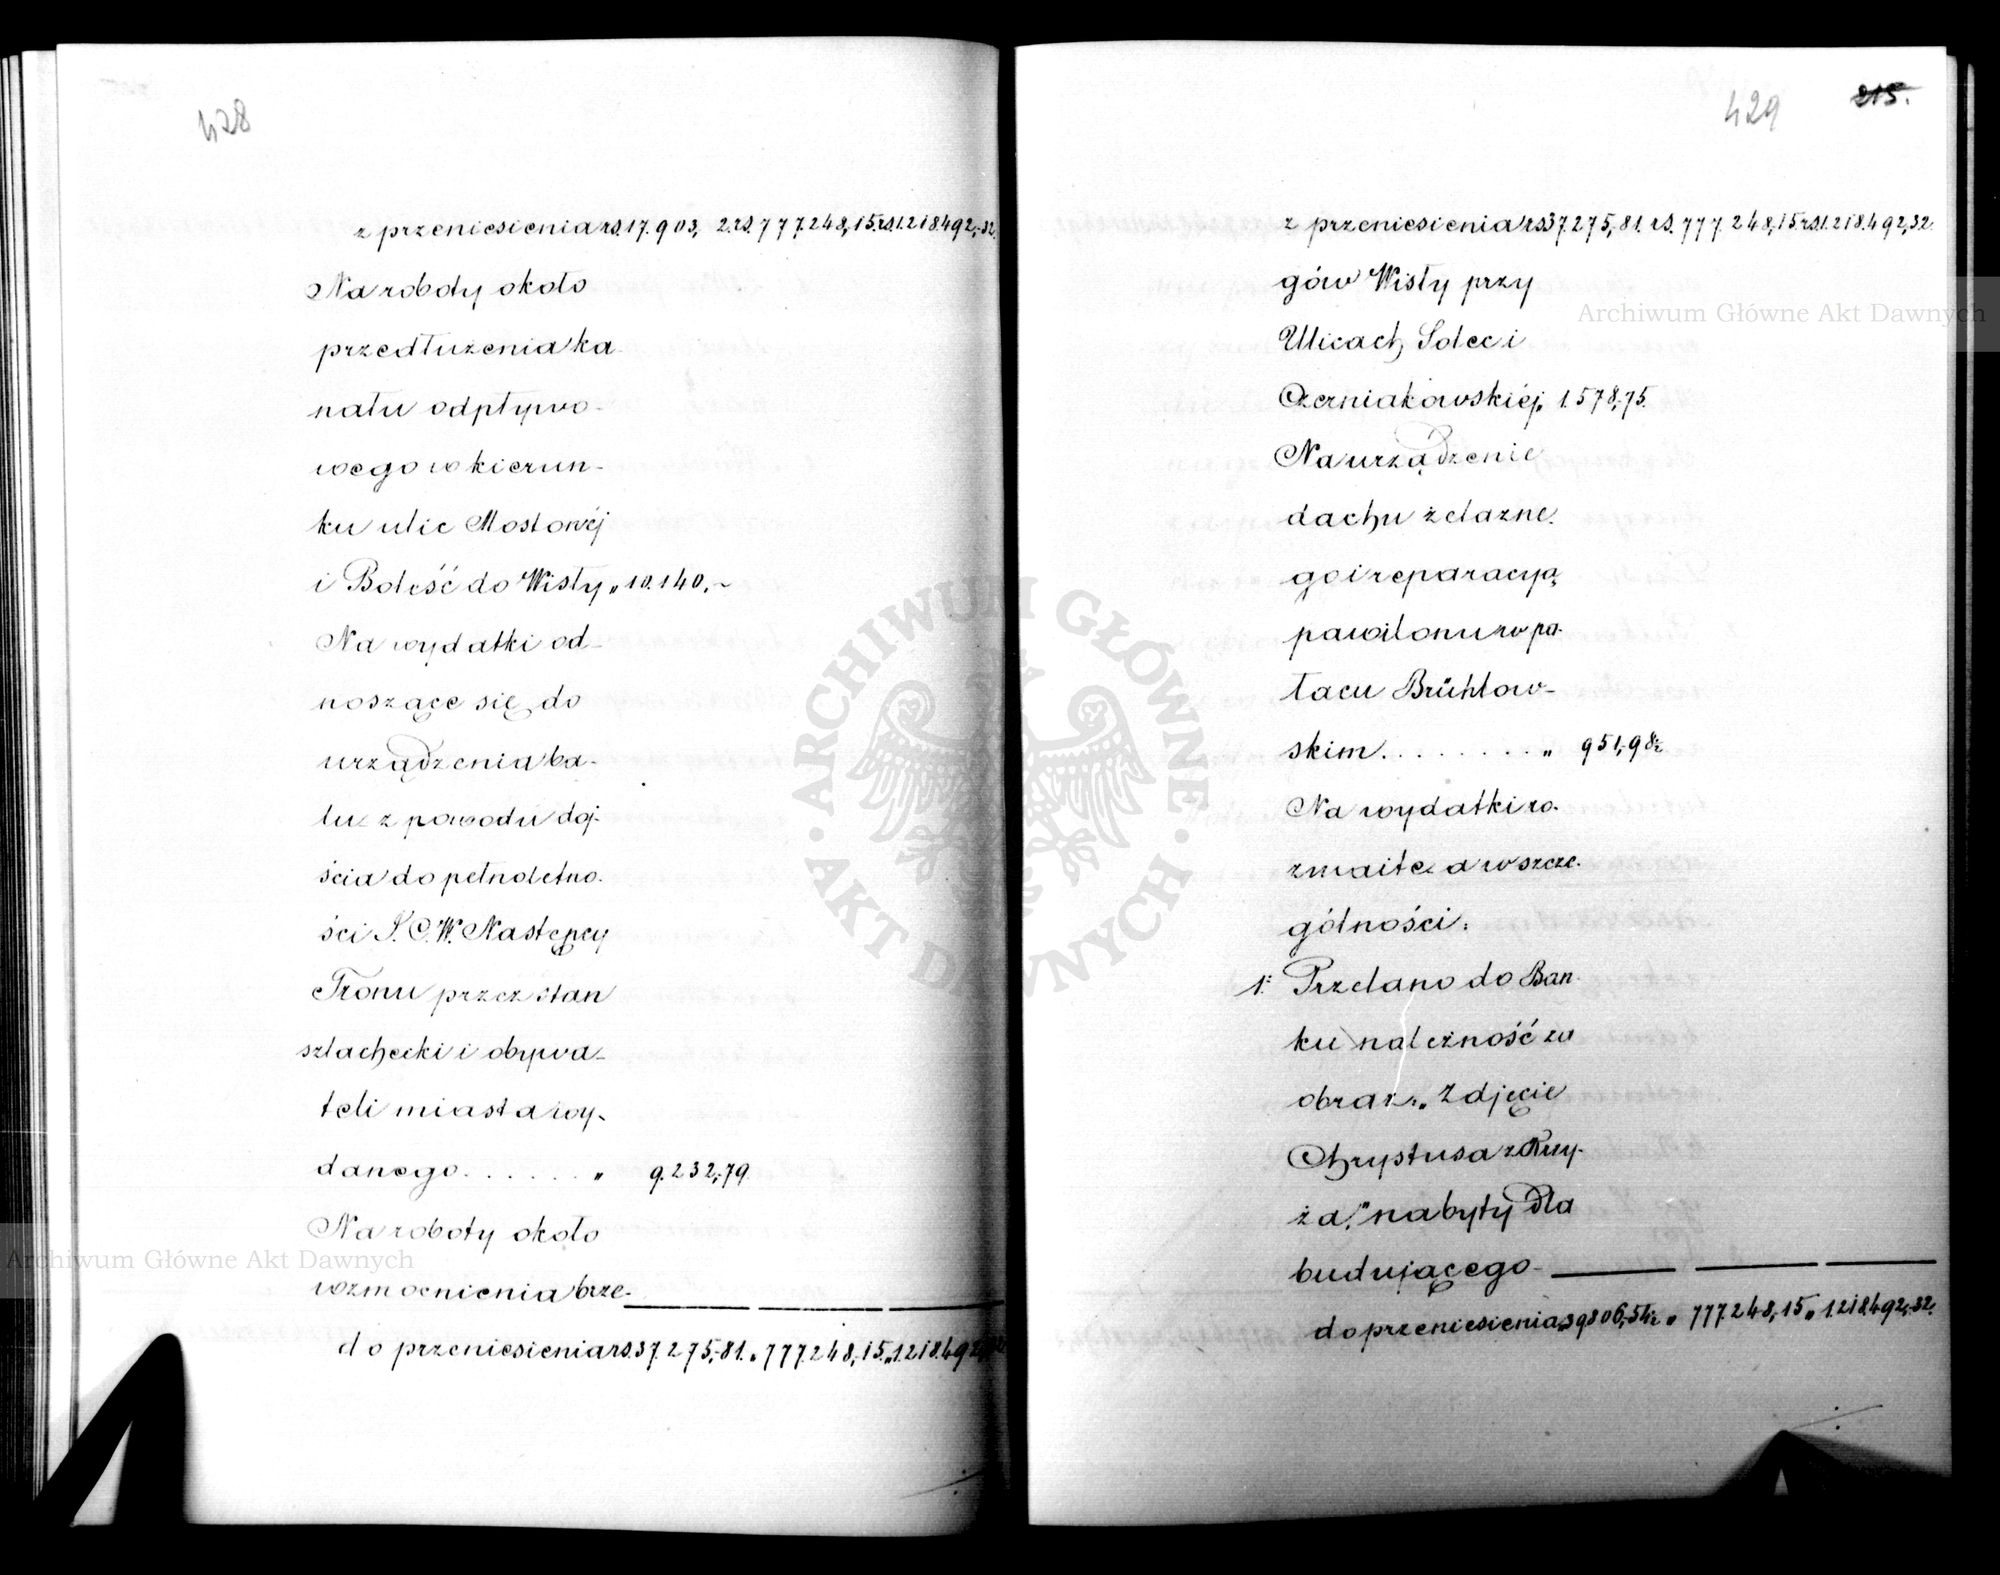 428
z przeniesienia rs. 17.903, 2. rs. 777.248,15. rs. 1.218.492,32.
Na roboty około
przedłużenia ka
nału odpływo-
wego w kierun-
ku ulic Mostowéj
i Boleść do Wisły „ 10.140. ~
Na wydatki od-
noszące się do
urządzenia ba-
lu z powodu doj-
ścia do pełnoletno.
ści J. C. W. Następcy
Tronu przez stan
szlachecki i obywa-
teli miasta wy-
danego . . . . . . „ 9.232,79.
Na roboty około
wzmocnienia brze-
do przeniesienia rs. 37.275,81. „ 777.248,15. „ 1.218.492,32
429
215.
z przeniesienia rs 37.275,81. rs. 777.248,15. rs. 1.218.492,32.
gów Wisły przy
Ulicach Solec i
Czerniakowskiéj „ 1.578,75.
Na urządzenie
dachu żelazne.
go i reparacyją
pawilonu w pa-
łacu Brühlow-
skim. . . . . . . . „ 951,98½
Na wydatki ro.
zmaite a w szcze.
gólności:
1. Przelano do Ban-
ku należność za
obraz: „Zdjęcie
Chrystusa z Krzy-
ża," nabyty dla
budującego
do przeniesienia „ 39806,54½ „ 777.248,15 „ 1.218.492,32.
Archiwum Główne Akt Dawnych
Archiwum Główne Akt Dawnych
ARCHIWUM GŁÓWNE · AKT DAWNYCH ·